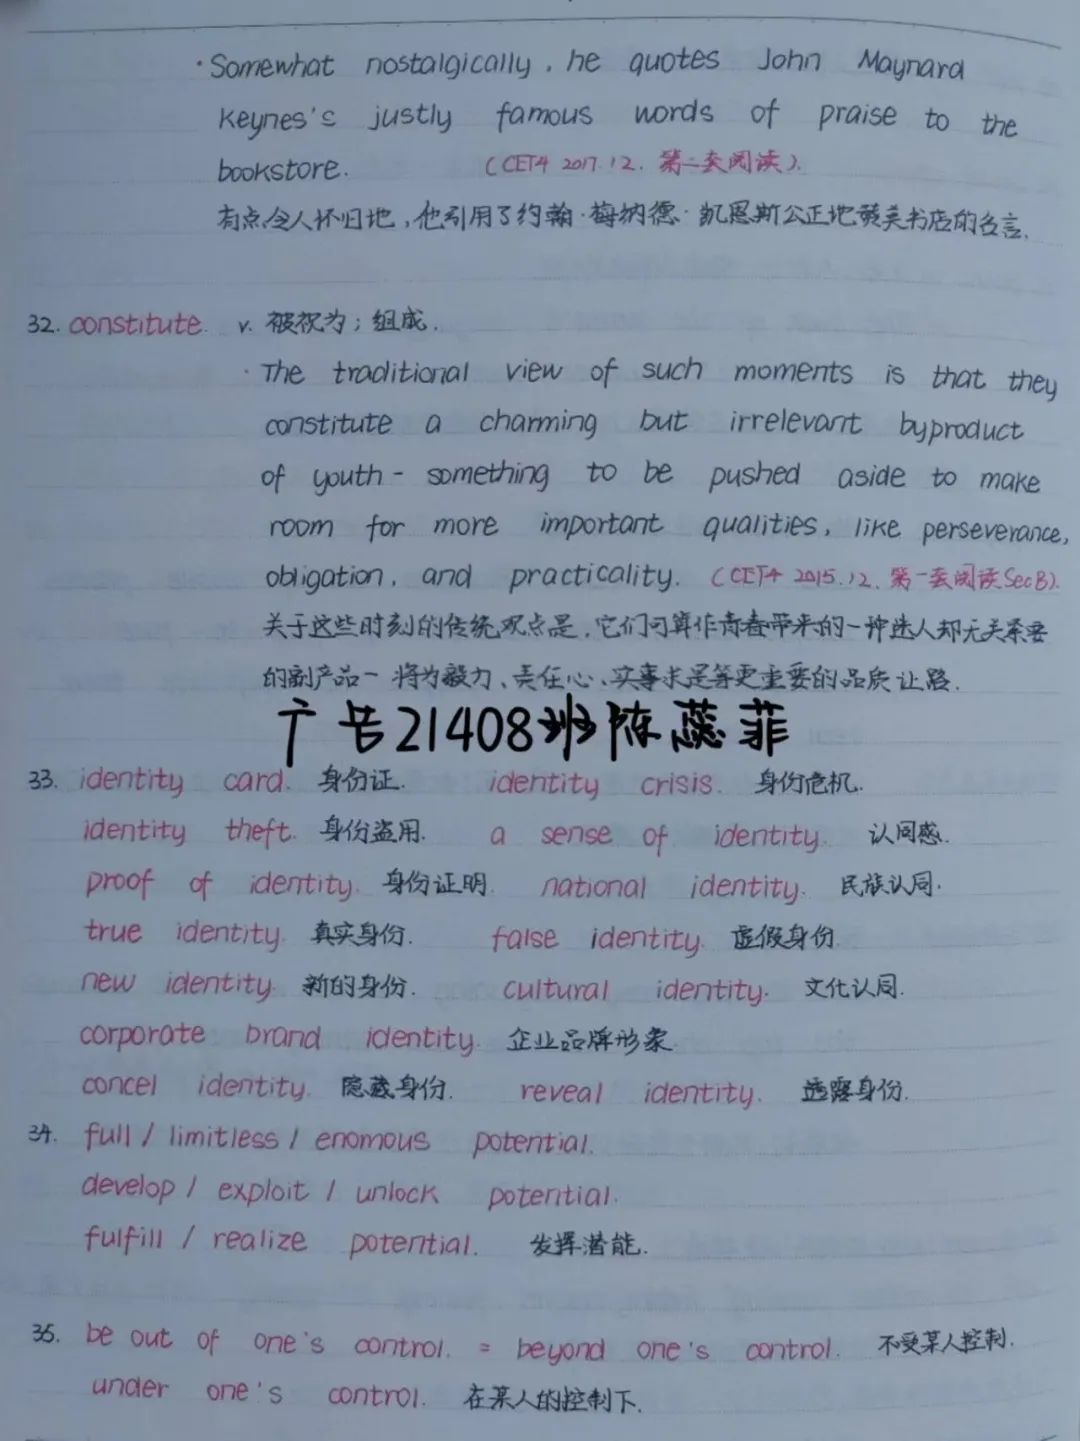 · Somewhat nostalgically, he quotes John Maynard
Keynes's justly famous words of praise to the
bookstore. (CET4 2017.12. 第二套阅读).
有点令人怀旧地,他引用了约翰·梅纳德·凯恩斯公正地赞美书店的名言.
32. constitute. v. 被视为; 组成.
· The traditional view of such moments is that they
constitute a charming but irrelevant byproduct
of youth - something to be pushed aside to make
room for more important qualities, like perseverance,
obligation, and practicality. (CET4 2015.12. 第一套阅读SecB).
关于这些时刻的传统观点是,它们可算作青春带来的一种迷人却无关紧要
的副产品一将为毅力、责任心、实事求是等更重要的品质让路.
广告21408班陈蕊菲
33. identity card. 身份证. identity crisis. 身份危机.
identity theft. 身份盗用. a sense of identity. 认同感.
proof of identity. 身份证明. national identity. 民族认同.
true identity. 真实身份. false identity. 虚假身份.
new identity. 新的身份. cultural identity. 文化认同.
corporate brand identity. 企业品牌形象.
concel identity. 隐藏身份. reveal identity. 透露身份.
34. full / limitless / enomous potential.
develop / exploit / unlock potential.
fulfill / realize potential. 发挥潜能.
35. be out of one's control. = beyond one's control. 不受某人控制.
under one's control. 在某人的控制下.